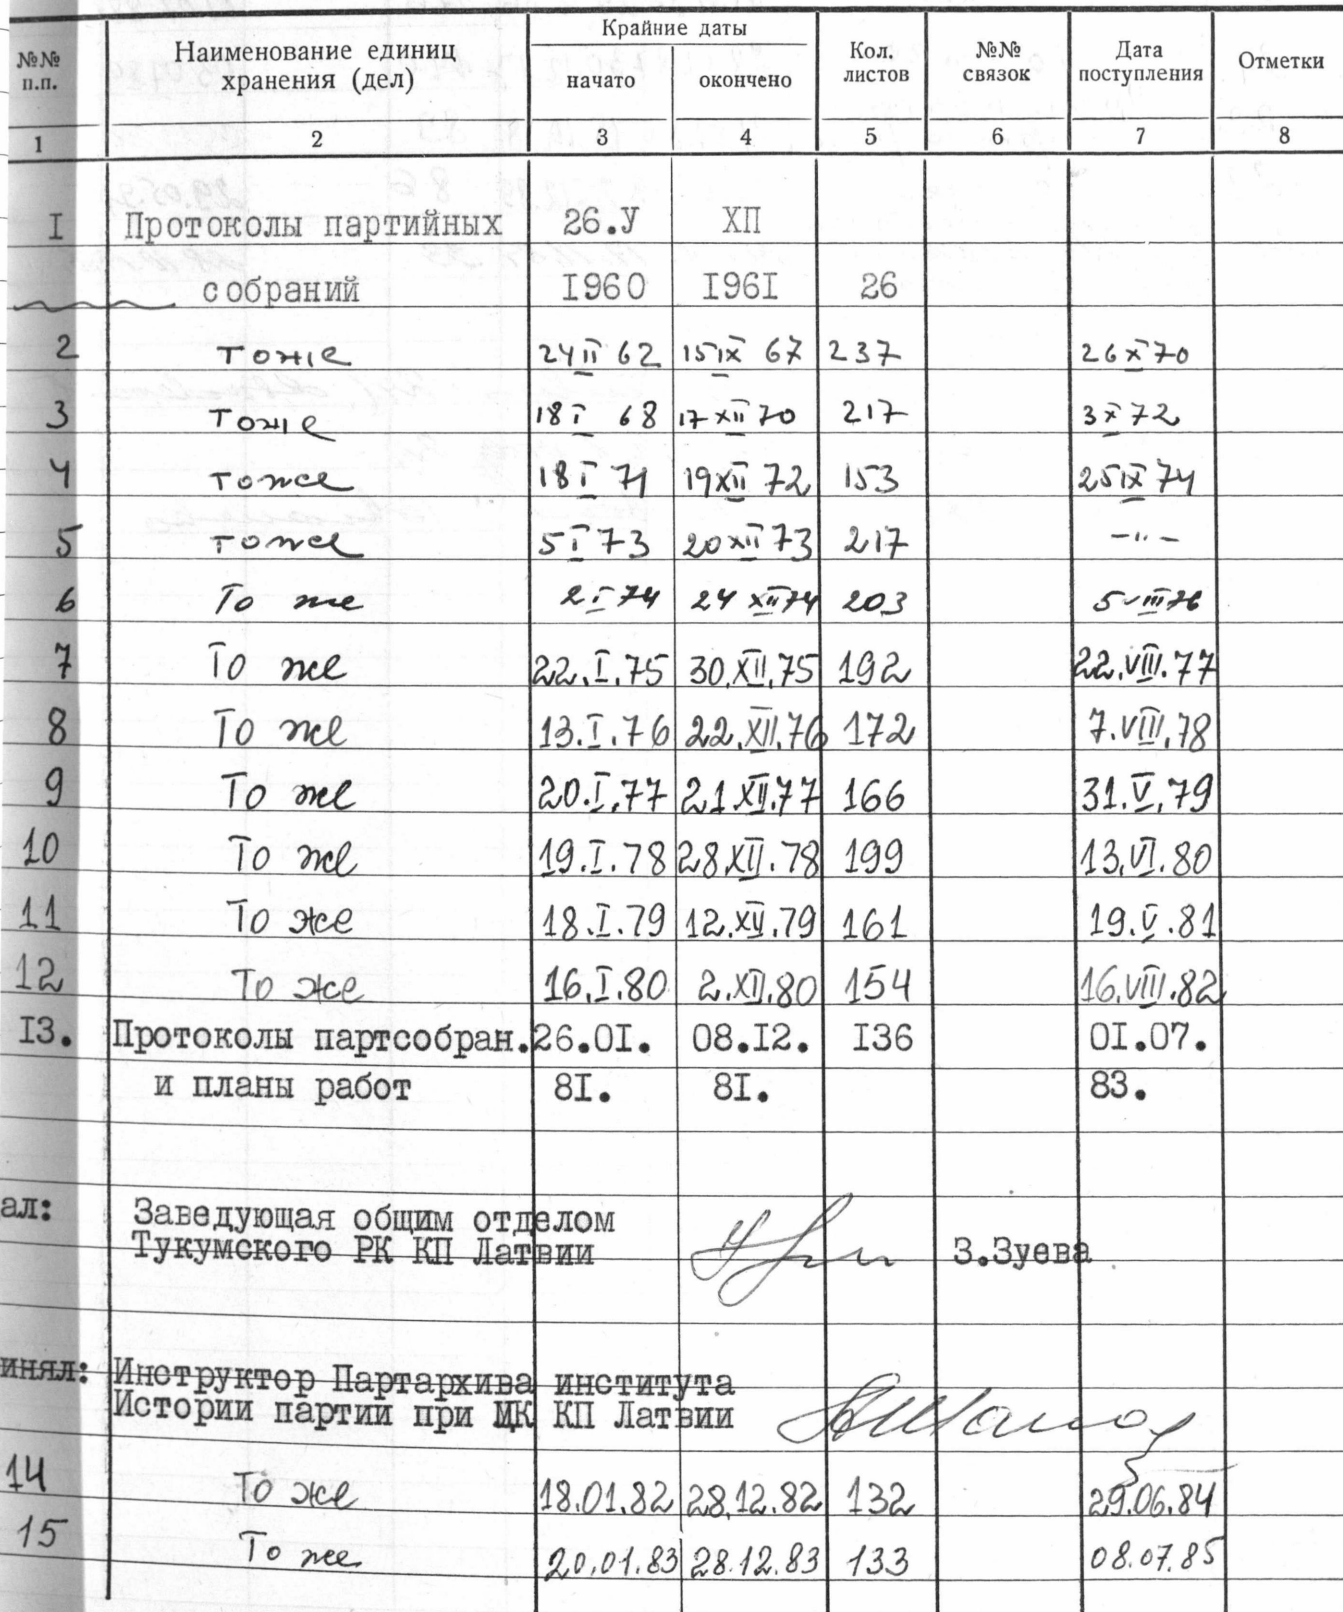 №№ п.п. Наименование единиц хранения (дел) Крайние даты Кол. листов №№ связок Дата поступления Отметки
начато окончено
1 2 3 4 5 6 7 8
I Протоколы партийных 26.У ХП
собраний I960 I96I 26
2 тоже 24 II 62 15 IX 67 237 26 X 70
3 тоже 18 I 68 17 XII 70 217 3 X 72
4 тоже 18 I 71 19 XII 72 153 25 IX 74
5 тоже 5 I 73 20 XII 73 217 -"-
6 То же 2 I 74 24 XII 74 203 5 VIII 76
7 То же 22.I.75 30.XII.75 192 22.VIII.77
8 То же 13.I.76 22.XII.76 172 7.VIII.78
9 То же 20.I.77 21.XII.77 166 31.V.79
10 То же 19.I.78 28.XII.78 199 13.VI.80
11 То же 18.I.79 12.XII.79 161 19.V.81
12 То же 16.I.80 2.XII.80 154 16.VIII.82
I3. Протоколы партсобран. 26.0I. 08.I2. I36 0I.07.
и планы работ 8I. 8I. 83.
ал: Заведующая общим отделом
Тукумского РК КП Латвии З.Зуева
инял: Инструктор Партархива института
Истории партии при ЦК КП Латвии
14 То же 18.01.82 28.12.82 132 29.06.84
15 То же 20.01.83 28.12.83 133 08.07.85